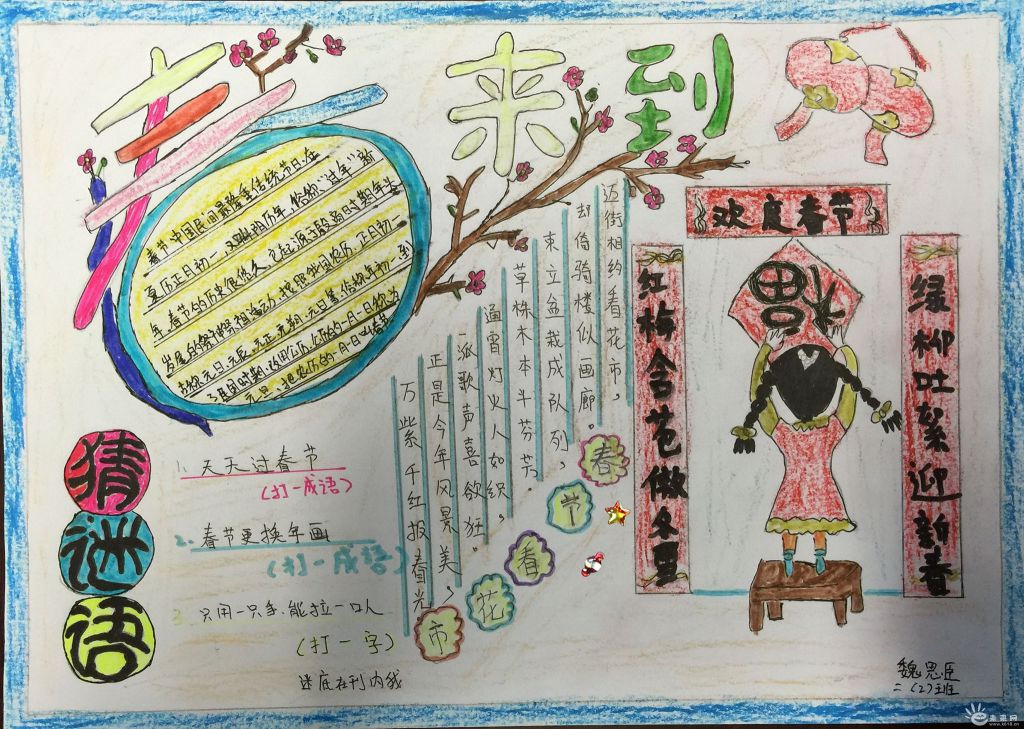 春来到
春节,中国民间最隆重传统节日。在
夏历正月初一,又叫阴历年,俗称“过年”新
年。春节的历史很悠久,它起源于殷商时期年关
岁尾的祭神祭祖活动。按照我国农历,正月初一
古称元日、元辰、元正、元朔、元旦等,俗称年初一,到
了民国时期,改用公历,公历的一月一日称为
元旦,把农历的一月一日叫春节
迈街相约看花市,
却倚骑楼似画廊。
束立盆栽成队列,
草株木本斗芬芳。
通宵灯火人如织,
一派歌声喜欲狂。
正是今年风景美,
万紫千红报春光
春节看花市
欢度春节
红梅含苞傲冬雪
福
绿柳吐絮迎新春
猜谜语
1. 天天过春节
(打一成语)
2. 春节更换年画
(打一成语)
3. 只用一只手,能拉一口人
(打一字)
谜底在刊内找
魏思臣
二(2)班
未来网
www.k618.cn